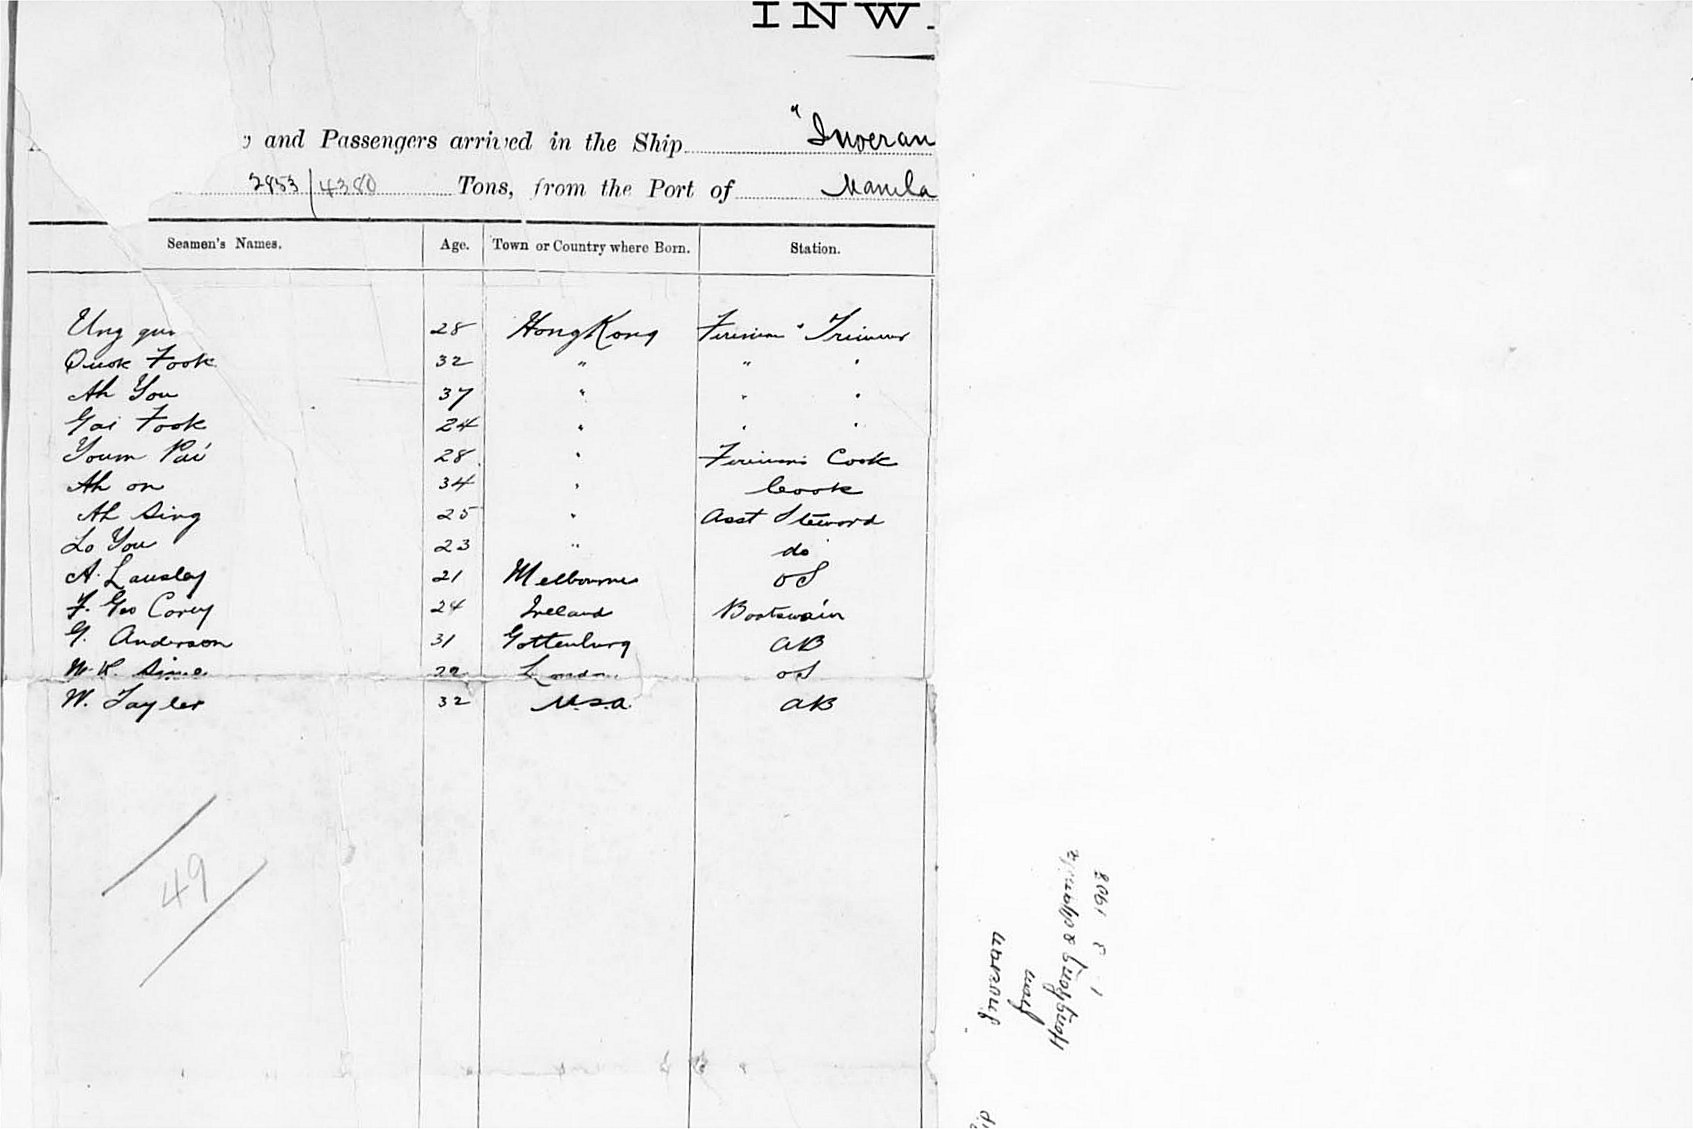 INW
and Passengers arrived in the Ship "Inveran
2953/4380 Tons, from the Port of Manila
Seamen's Names. Age. Town or Country where Born. Station.
Ung 28 HongKong Firemen & Trimmers
Quok Fook 32 " " "
Ah You 37 " " "
Gai Fook 24 " " "
Youm Pai 28 " Firemen's Cook
Ah on 34 " Cook
Ah Sing 25 " Asst Steward
Lo You 23 " do
A. Lausley 21 Melbourne OS
F. Geo Corey 24 Ireland Boatswain
G. Anderson 31 Gottenburg AB
Sime London OS
W. Tayler 32 U.S.A. AB
49
Inveran
from
HongKong & Manila
1 3 1908